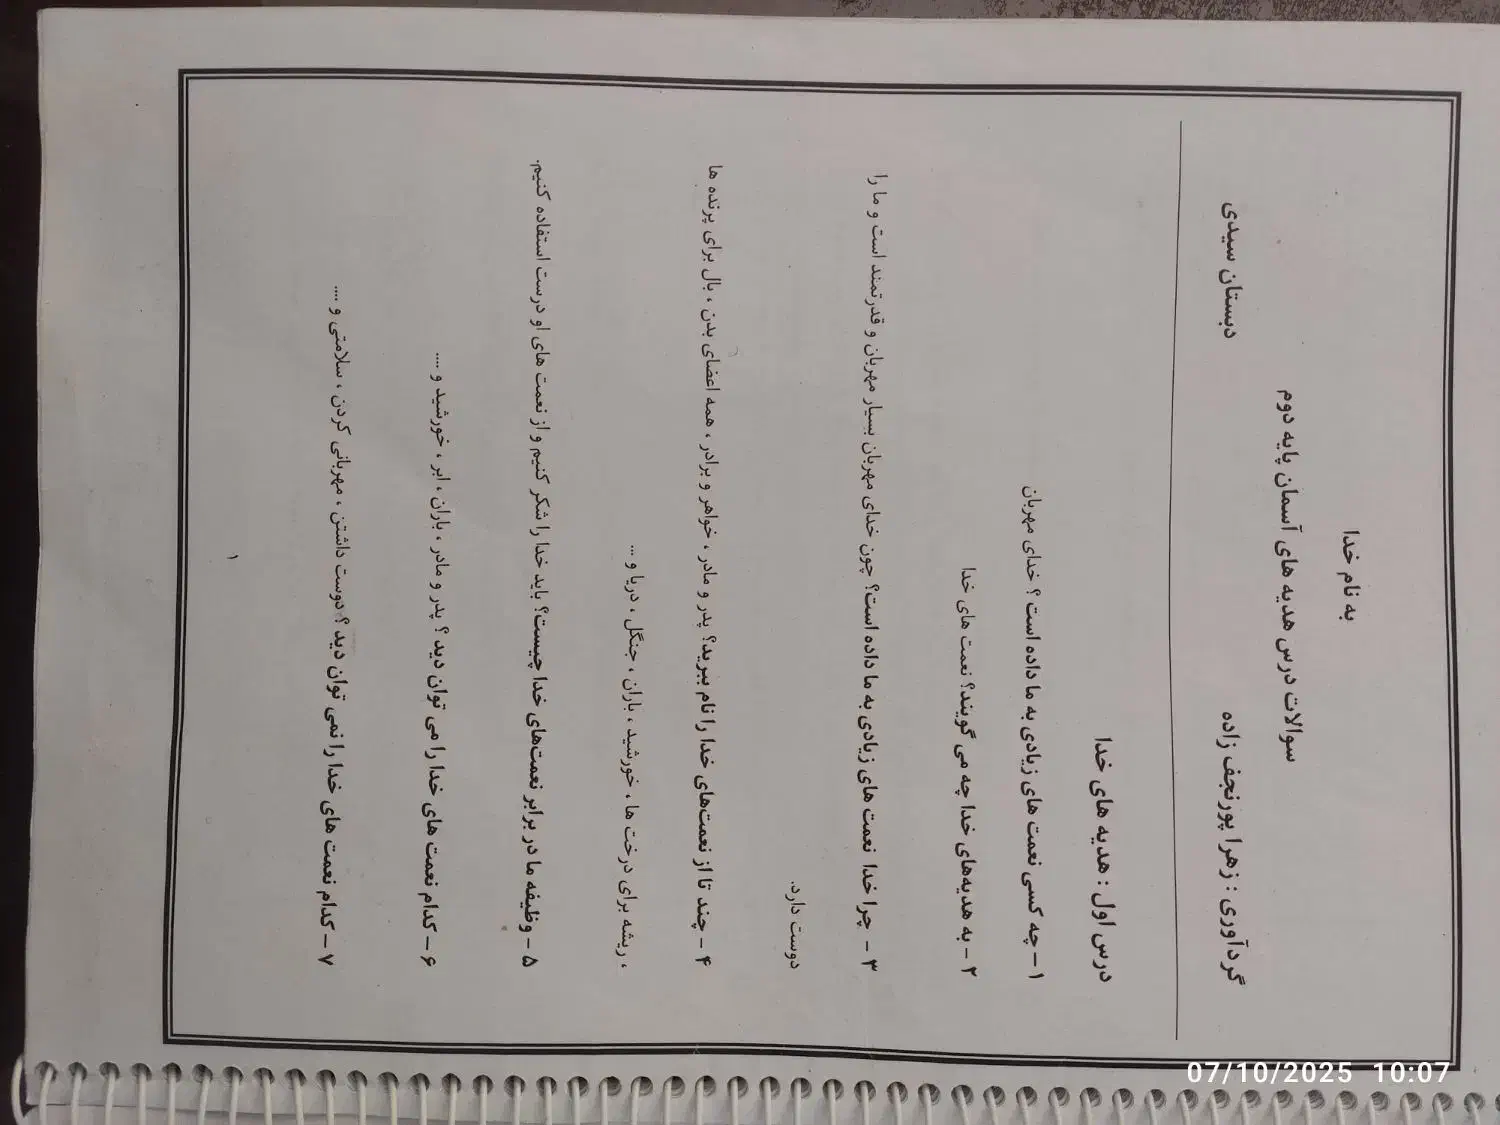 به نام خدا
سوالات درس هدیه های آسمان پایه دوم
گردآوری : زهرا پورنجف زاده
دبستان سیدی
درس اول : هدیه های خدا
۱ – چه کسی نعمت های زیادی به ما داده است ؟ خدای مهربان
۲ – به هدیه‌های خدا چه می گویند؟ نعمت های خدا
۳ – چرا خدا نعمت های زیادی به ما داده است؟ چون خدای مهربان بسیار مهربان و قدرتمند است و ما را
دوست دارد.
۴ – چند تا از نعمت‌های خدا را نام ببرید؟ پدر و مادر ، خواهر و برادر ، همه اعضای بدن ، بال برای پرنده ها
، ریشه برای درخت ها ، خورشید ، باران ، جنگل ، دریا و ...
۵ – وظیفه ما در برابر نعمت‌های خدا چیست؟ باید خدا را شکر کنیم و از نعمت های او درست استفاده کنیم.
۶ – کدام نعمت های خدا را می توان دید ؟ پدر و مادر ، باران ، ابر ، خورشید و .....
۷ – کدام نعمت های خدا را نمی توان دید ؟ دوست داشتن ، مهربانی کردن ، سلامتی و ....
۱
07/10/2025 10:07